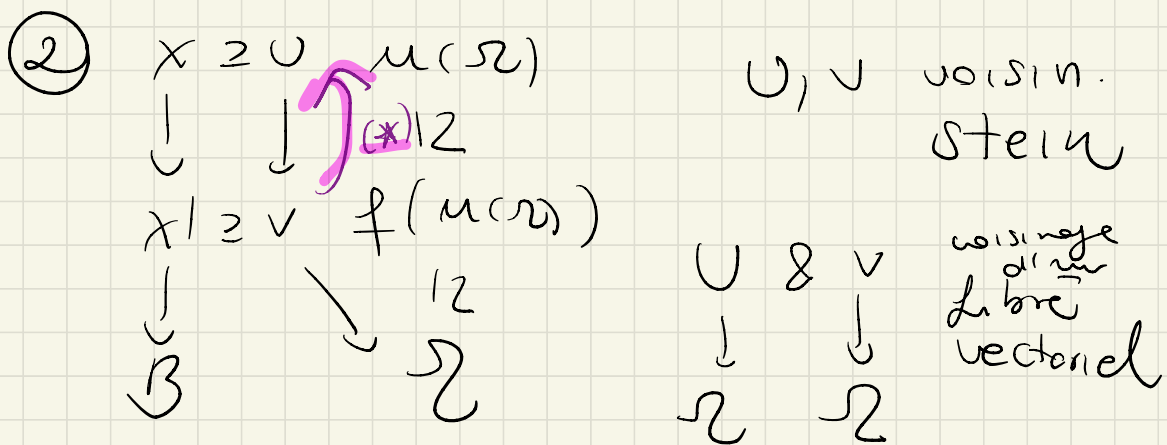 ② X ⊇ U μ(Ω)
↓ ↓ (*) ≀
X' ⊇ V f(μ(Ω))
↓ ↘ ≀
B Ω
U, V voisin.
stein
U & V voisinage
d'un
fibré
vectoriel
↓ ↓
Ω Ω